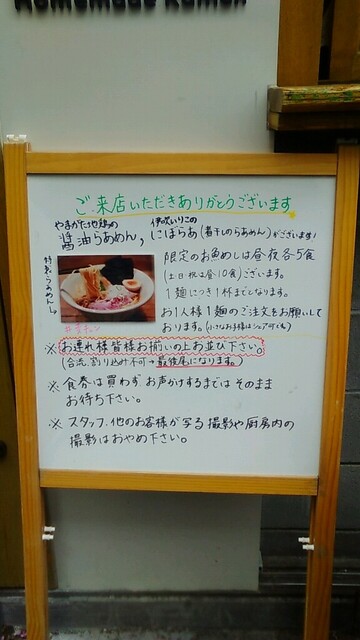 Homemade Ramen
ご来店いただきありがとうございます
やまがた地鶏の 伊吹いりこの
醤油らあめん, にぼらあ(煮干しのらあめん)がございます!
限定のお魚めしは昼夜各5食
(土日祝は昼10食)ございます。
1麺につき1杯までとなります。
お1人様1麺のご注文をお願いして
おります。(小さなお子様はシェア可です)
※お連れ様皆様お揃いの上お並び下さい。
(合流、割り込み不可→最後尾になります。)
※食券は買わずお声かけするまではそのまま
お待ち下さい。
※スタッフ、他のお客様が写る撮影や厨房内の
撮影はおやめ下さい。